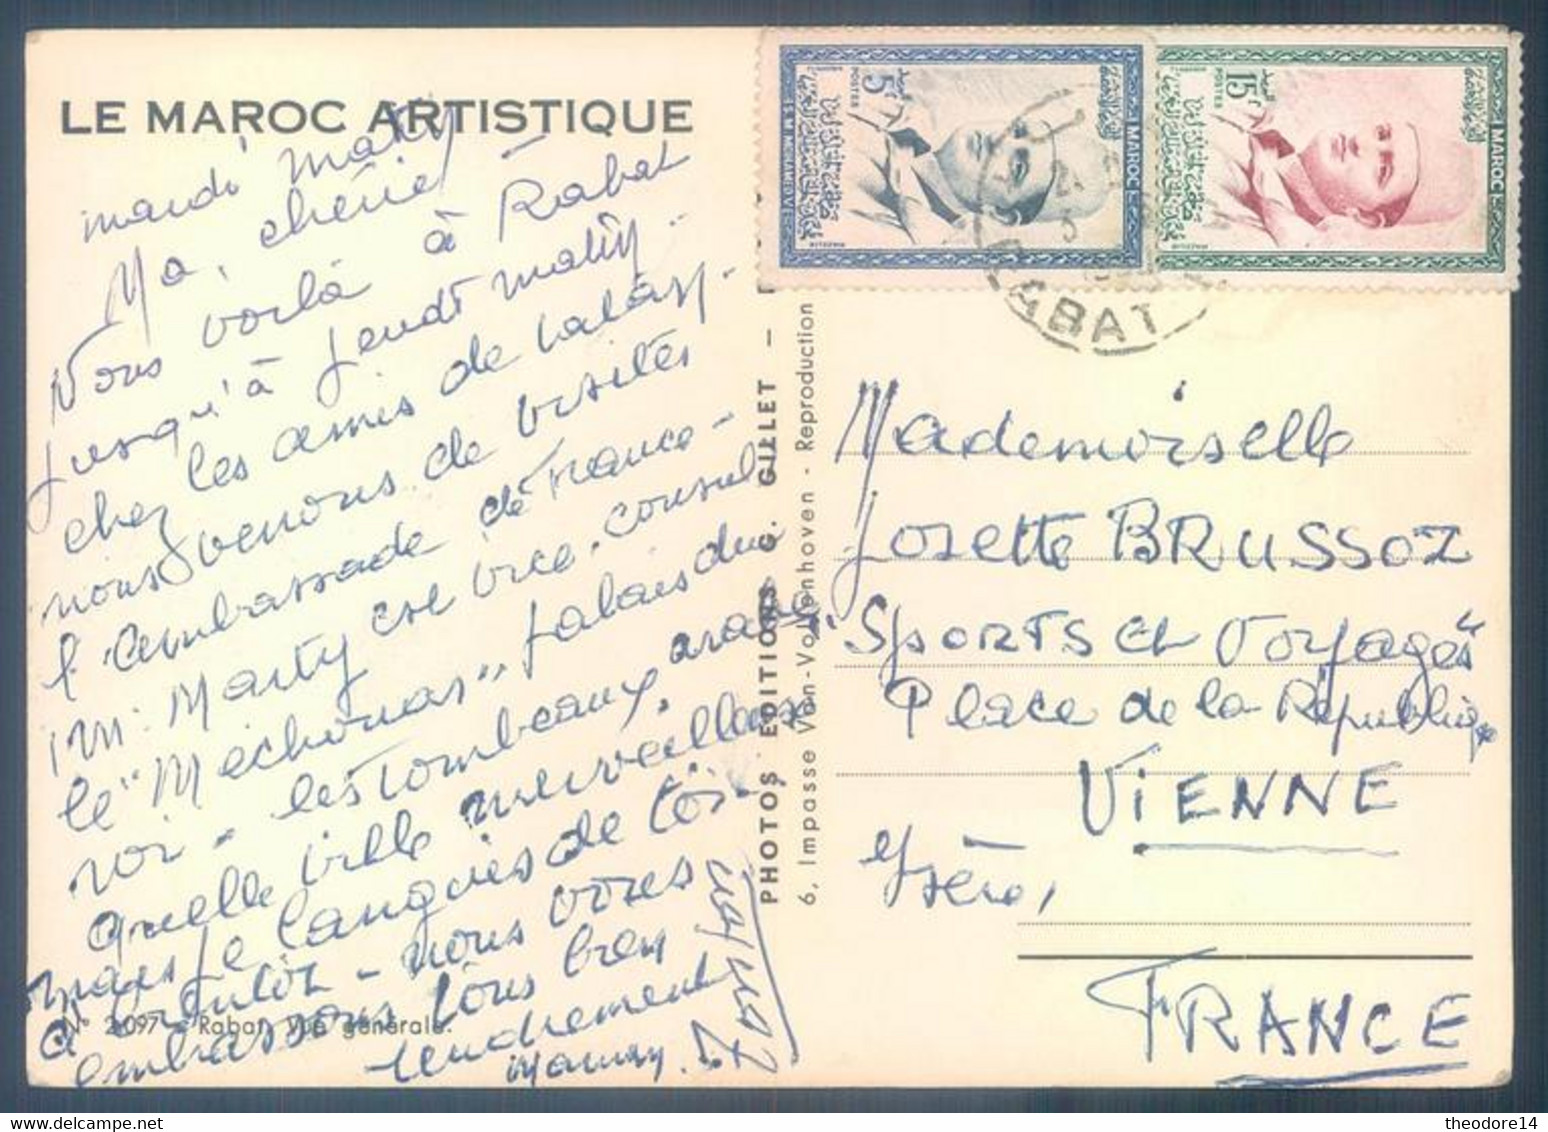 LE MAROC ARTISTIQUE
mardi matin
Ma chérie
Nous voilà à Rabat
jusqu'à jeudi matin
chez les amis de
nous venons de visites
l'embassade de France -
M. Marty est vice-consul
le "Mechouar" palais du
roi - les tombeaux, arabes,
quelle ville merveilleuse
mais je languis de toi
à bientôt - nous vous
embrassons tous bien
tendrement
Mamy
N° 2.097 - Rabat. Vue générale.
PHOTOS EDITIONS G. GILLET -
6, Impasse Van-Vollenhoven - Reproduction
5F
POSTES
MAROC
S.M. MOHAMMED V
MAZELIN
15F
POSTES
MAROC
MAZELIN
RABAT
Mademoiselle
Josette BRUSSOZ
"Sports et Voyages"
Place de la République
VIENNE
Isère,
FRANCE
theodore14